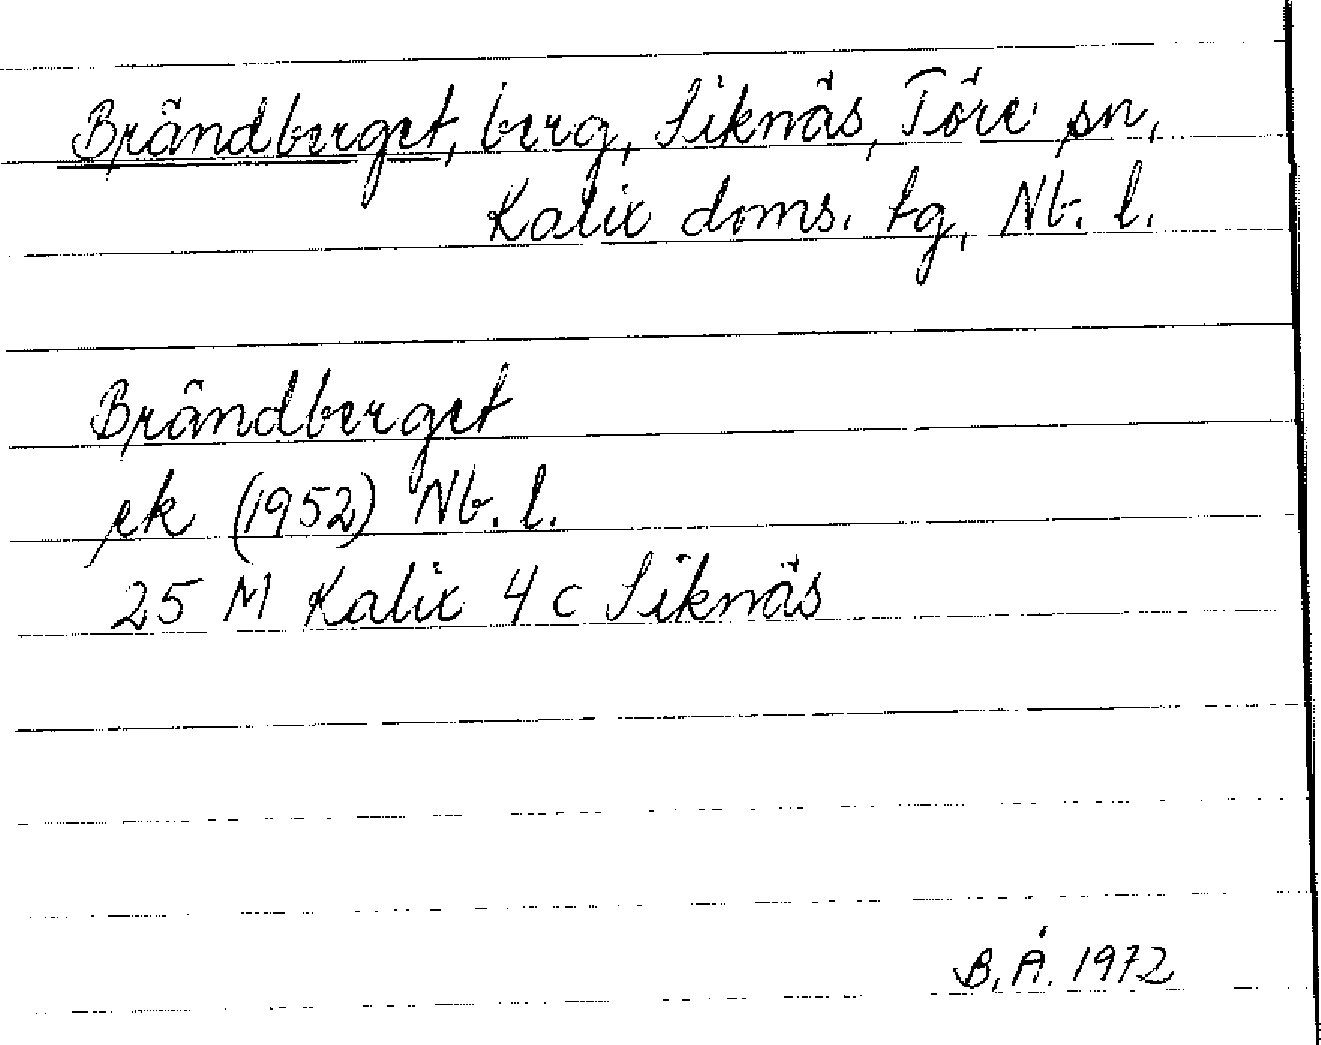 Brändberget, berg, Siknäs, Töre sn,
Kalix doms. tg, Nb. l.
Brändberget
ek (1952) Nb. l.
25 M Kalix 4 c Siknäs
B. Å. 1972